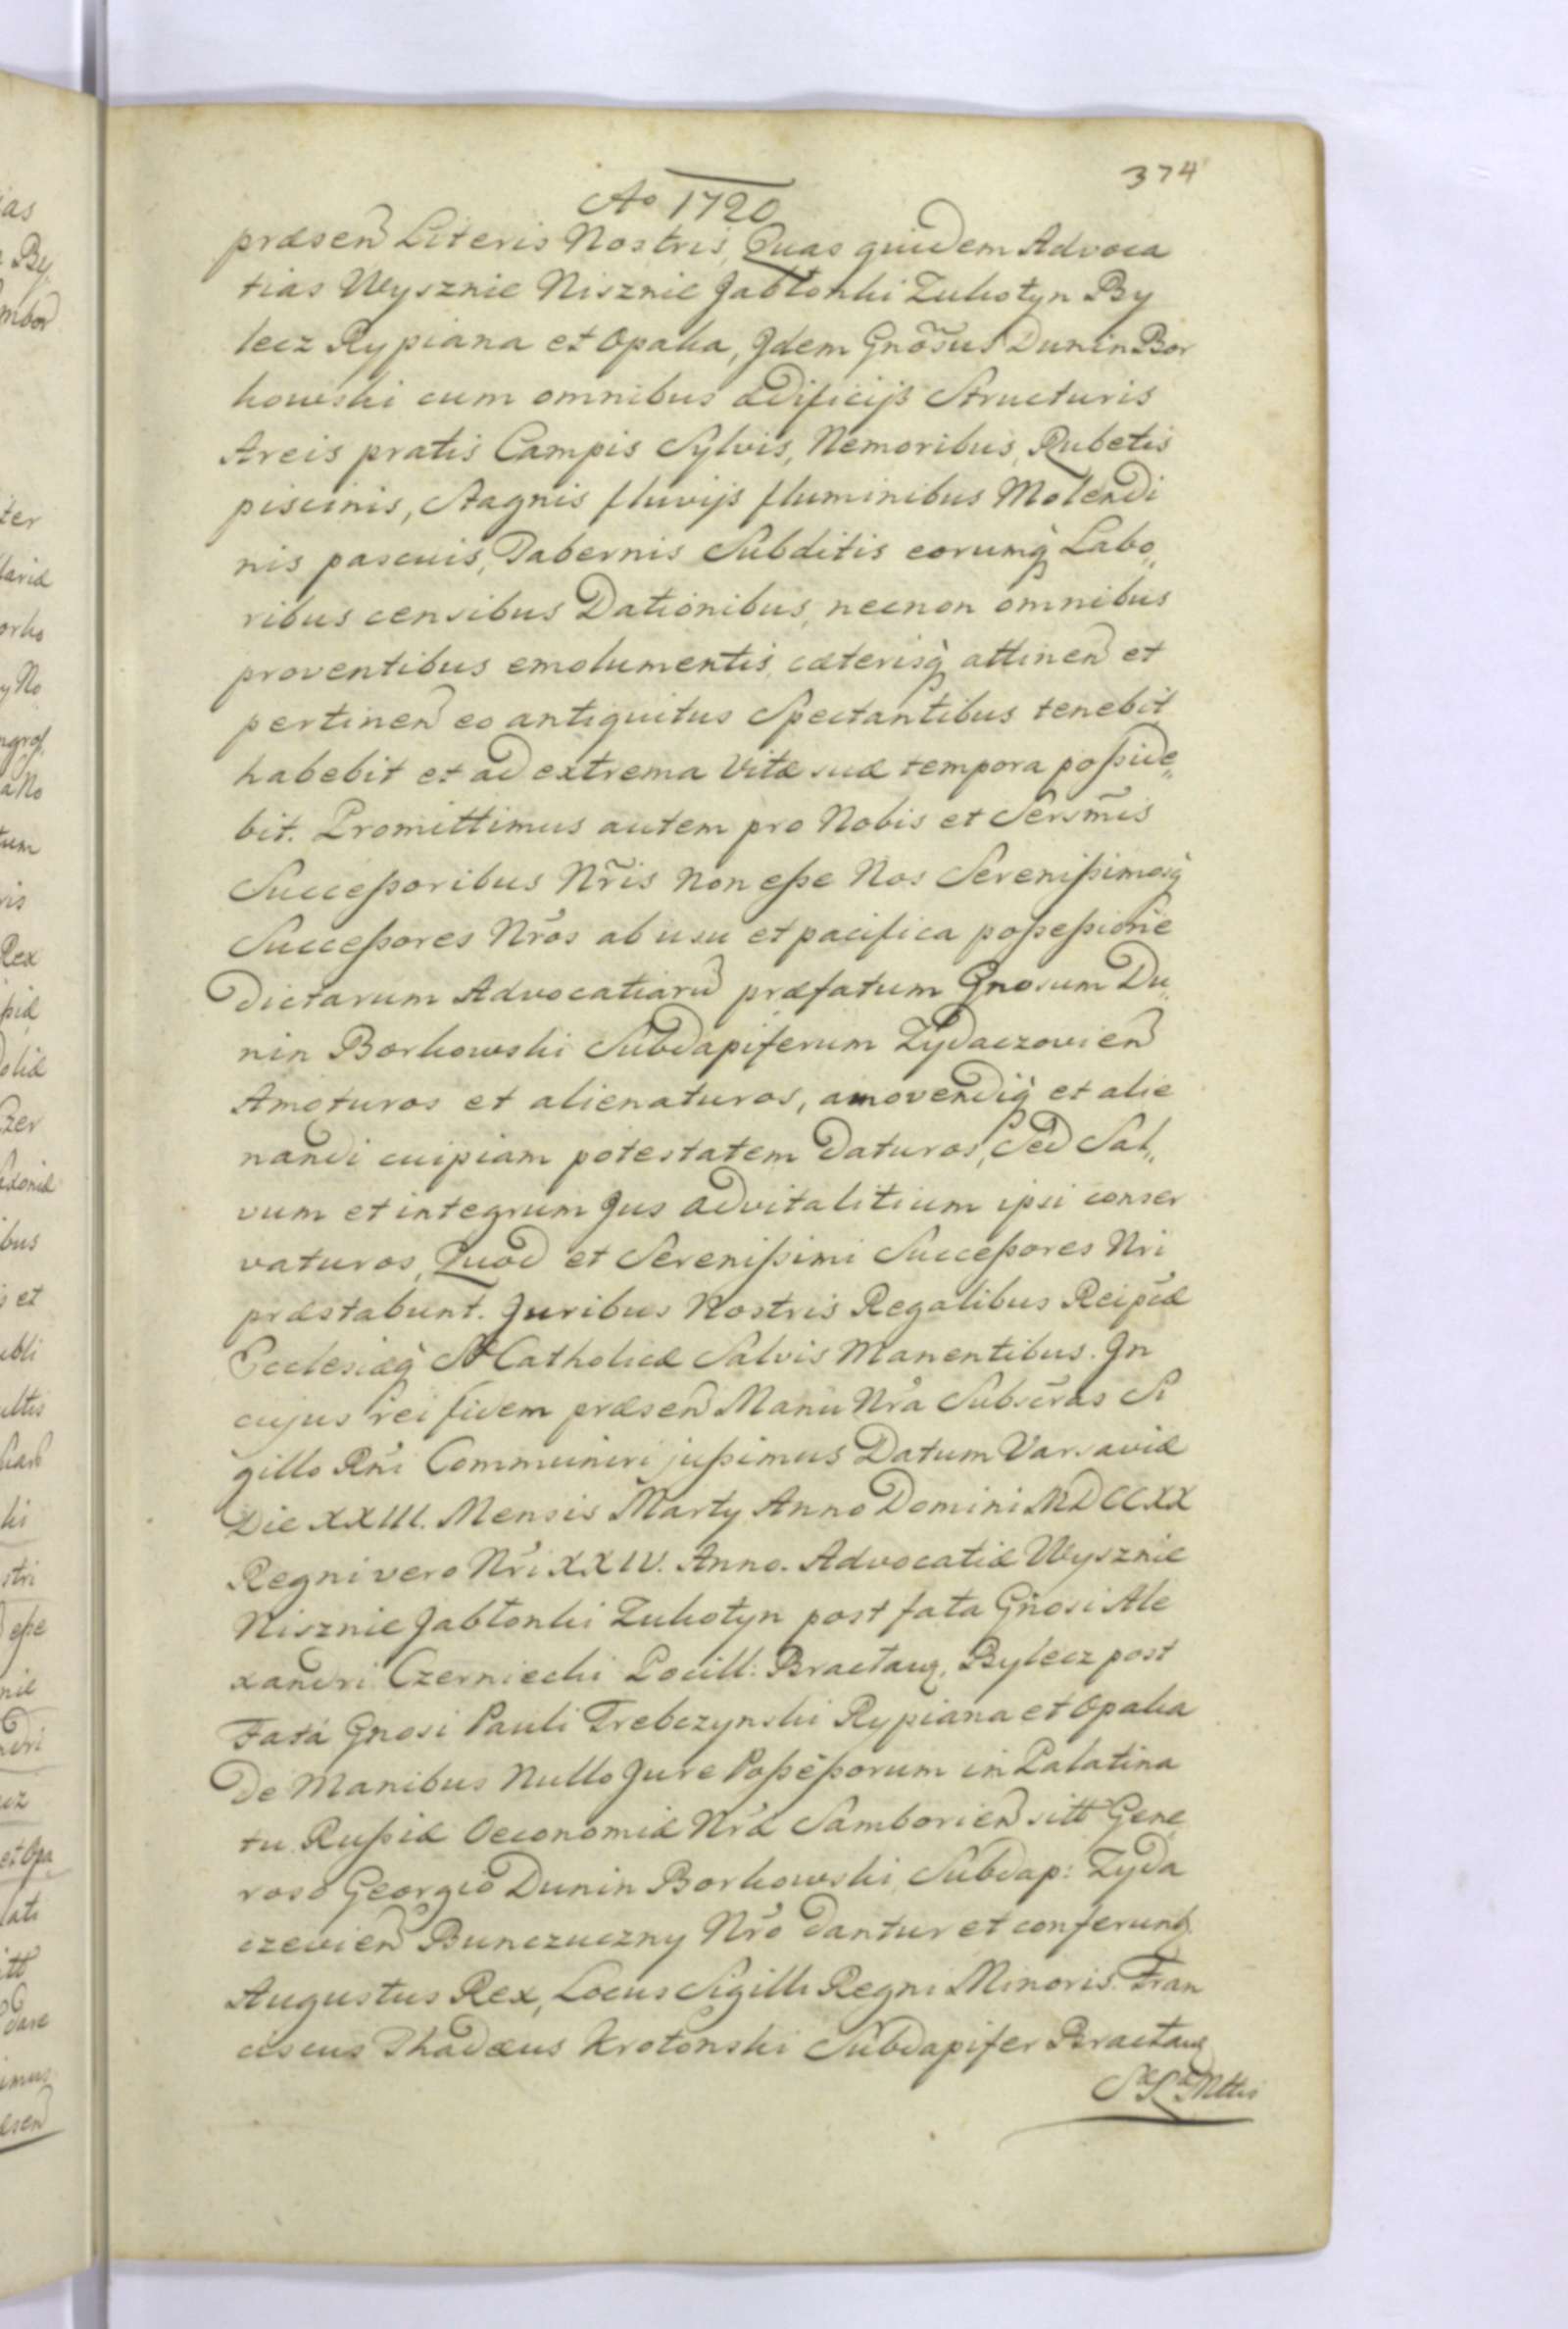 374
Ao 1720
præsen Literis Nostris, Quas quidem Advoca
tias Wysznie Nisznie Jabłonki Zukotyn By
lecz Rypiana et Opaka, Jdem Gnosus Dunin Bor
kowski cum omnibus ædificijs Structuris
Areis pratis Campis Sylvis, Nemoribus, Rubetis
piscinis, Stagnis fluvijs fluminibus Molendi
nis pascuis, Tabernis Subditis eorumq Labo„
ribus censibus Dationibus, necnon omnibus
proventibus emolumentis, cæterisq attinen et
pertinen eo antiquitus Spectantibus tenebit
habebit et ad extrema Vitæ suæ tempora poßide„
bit. Promittimus autem pro Nobis et Sersmis
Succeßoribus Nris Non eße Nos Serenißimosq
Succeßores Nros ab usu et pacifica poßeßione
Dictarum Advocatiaru præfatum Gnosum Du„
nin Borkowski Subdapiferum Zydaczovien
Amoturos et alienaturos, amovendiq et alie
nandi cuipiam potestatem Daturos, Sed Sal„
vum et integrum Jus advitalitium ipsi conser
vaturos, Quod et Serenißimi Succeßores Nri
præstabunt. Juribus Nostris Regalibus Reipcæ
Ecclesiæq Stæ Catholicæ Salvis Manentibus. Jn
cujus rei fidem præsen Manu Nra Subscras Si
gillo Rni Communiri jußimus Datum Varsaviæ
Die XXIII. Mensis Marty Anno Domini MDCCXX
Regni vero Nri XXIV. Anno. Advocatiæ Wysznie
Nisznie Jabłonki Zukotyn post fata Gnosi Ale
xandri Czerniecki Pocill: Bracłaus, Bylecz post
Fata Gnosi Pauli Trebczynski Rypiana et Opaka
De Manibus Nullo Jure Poßeßorum in Palatina
tu Rußiæ Oeconomiæ Nræ Samborien sitt Gene
roso Georgio Dunin Borkowski Subdap: Zyda
czevien Bunczuczny Nro dantur et conferunt
Augustus Rex, Locus Sigilli Regni Minoris. Fran
ciscus Thadæus Krotonski Subdapifer Bracław